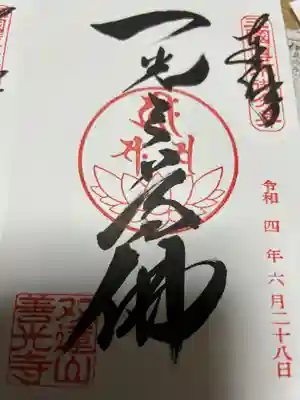 奉拝
一光三尊佛
令和四年六月二十八日
双蓮山
善光寺